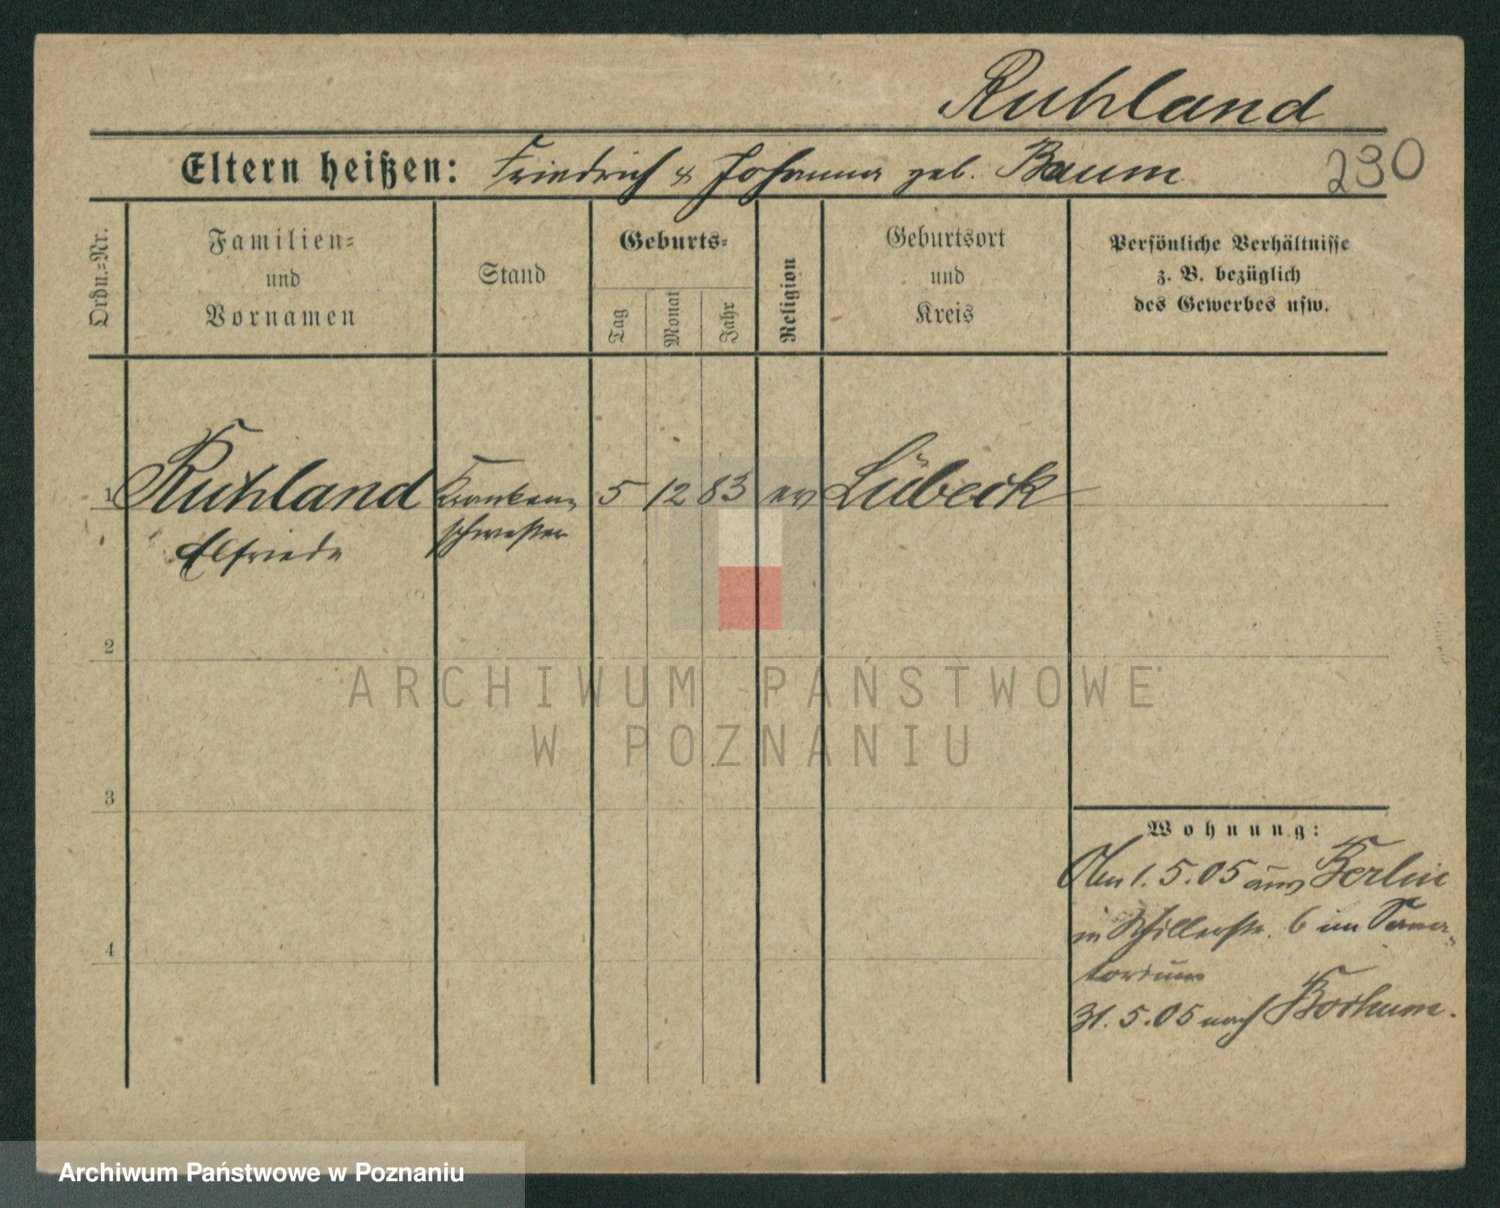 Ruhland
Eltern heißen: Friedrich & Johanna geb. Baum
230
Ordn.=Nr.
Familien=
und
Vornamen
Stand
Geburts=
Tag
Monat
Jahr
Religion
Geburtsort
und
Kreis
Persönliche Verhältnisse
z. B. bezüglich
des Gewerbes usw.
1 Ruhland Kranken= 5 12 83 ev Lübeck
Elfriede schwester
2
ARCHIWUM PAŃSTWOWE
W POZNANIU
3
Wohnung:
Am 1.5.05 aus Berlin
in Schillerstr. 6 im Sana-
torium
4
31.5.05 nach Borkum.
Archiwum Państwowe w Poznaniu